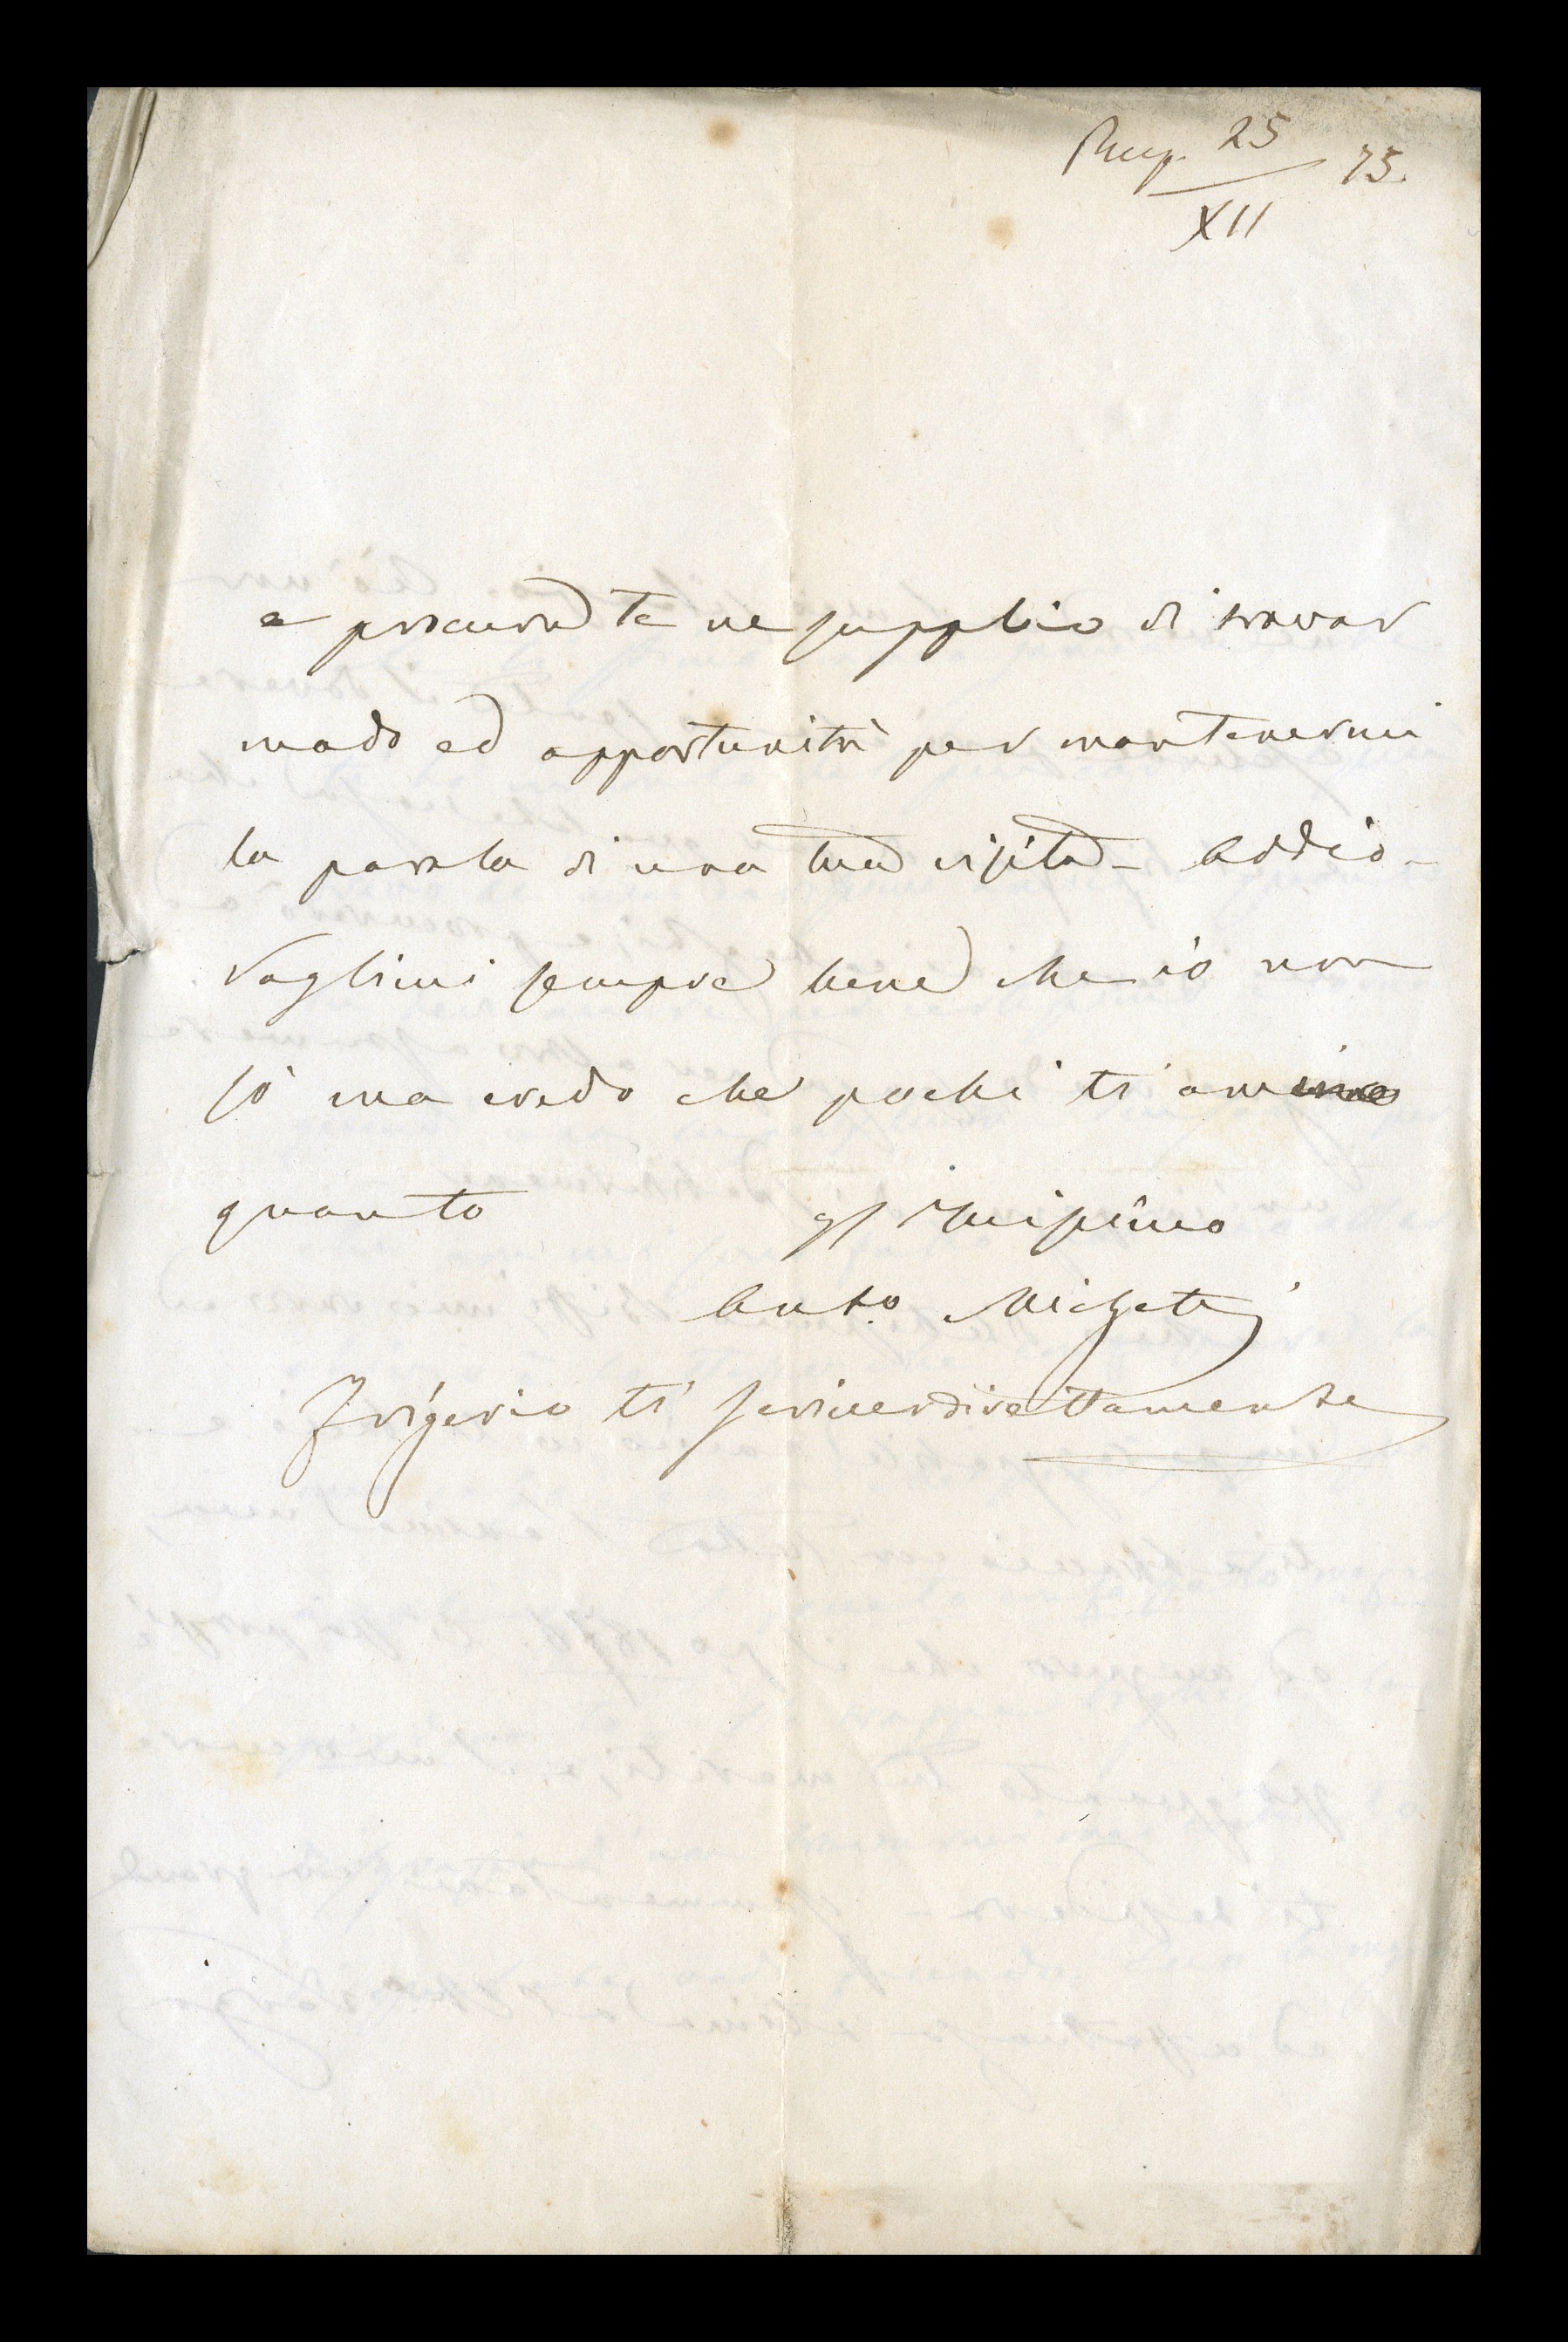 Risp. 25/XII 75.
e procura te ne supplico di trovar
modo ed opportunità per mantenermi
la parola di una tua visita – Addio –
Vogliimi sempre bene che io non
sò ma credo che pochi ti amino
quanto
Anto. Michetti
Frigerio ti scriver direttamente